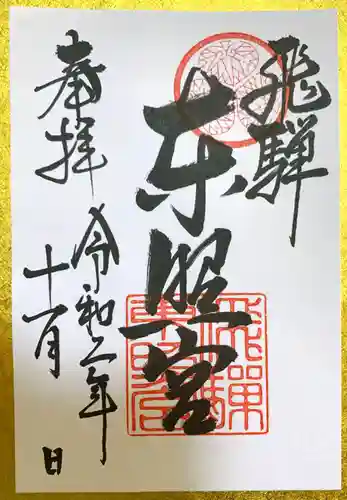 飛騨
東照宮
奉拝
令和二年
十一月 日
飛騨
東照宮